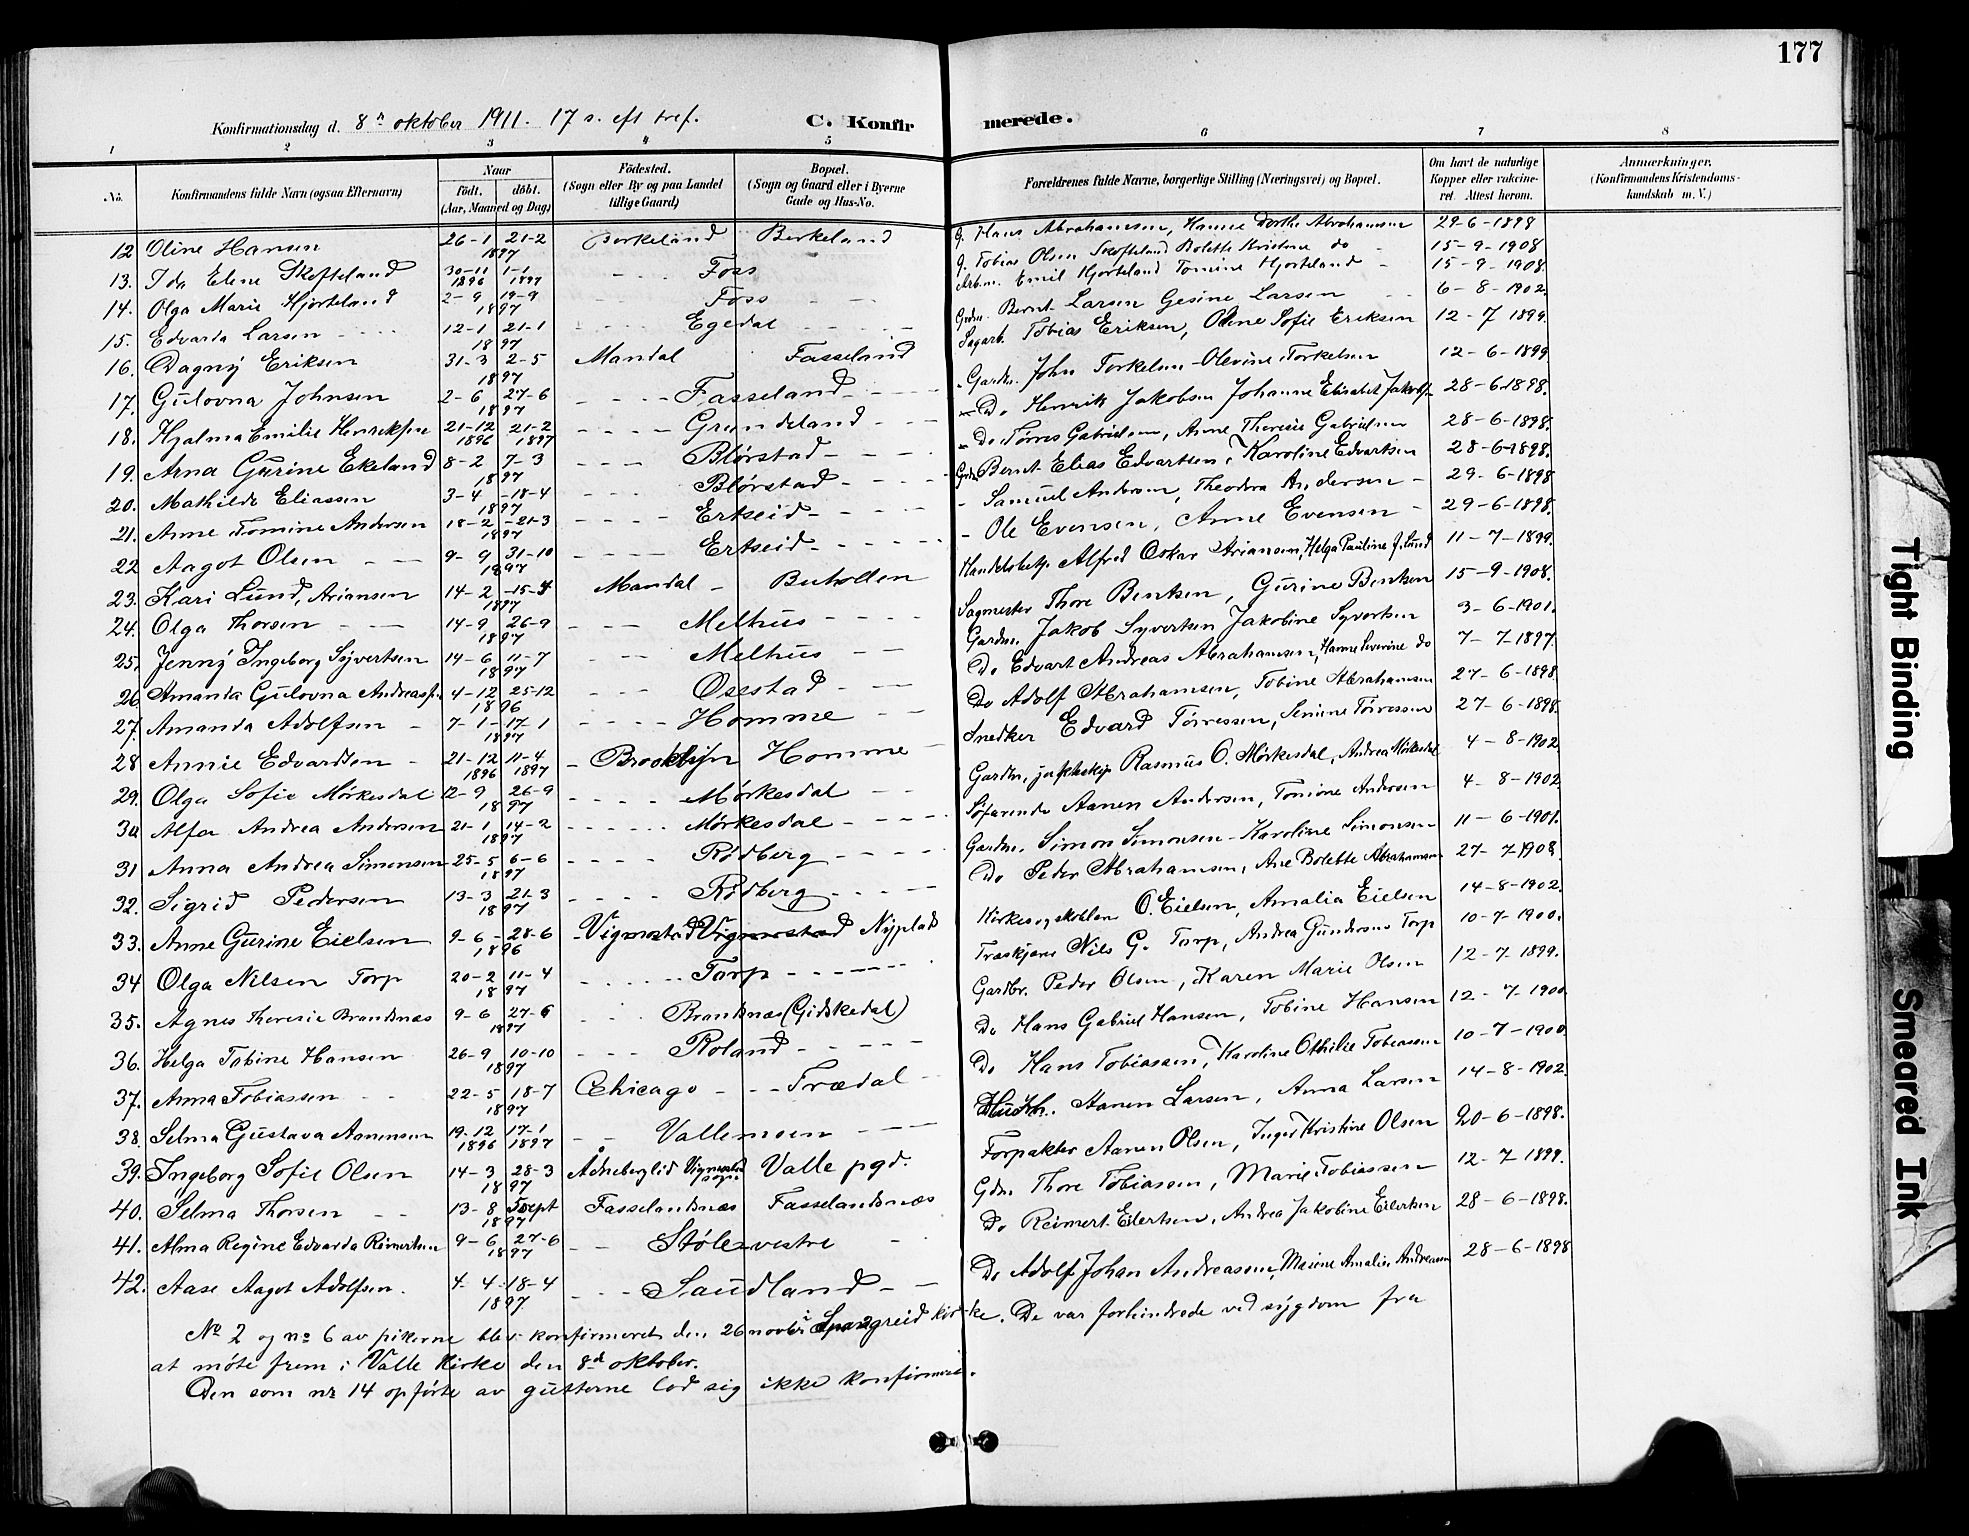 177
Konfirmationsdag d. 8n oktober 1911. 17 s. eft tref. C. Konfirmerede.
1 2 3 4 5 6 7 8
No. Konfirmandens fulde Navn (ogsaa Efternavn) Naar födt. döbt. (Aar, Maaned og Dag) Födested. (Sogn eller By og paa Landet tillige Gaard) Bopæl. (Sogn og Gaard eller i Byerne Gade og Hus-No. Forældrenes fulde Navne, borgerlige Stilling (Næringsvei) og Bopæl. Om havt de naturlige Kopper eller vakcineret. Attest herom. Anmærkninger. (Konfirmandens Kristendomskundskab m. V.)
12 Oline Hansen 26-1 21-2 1897 Berkeland Berkeland G. Hans Abrahamsen, Hanne Dorthe Abrahamsen 29-6-1898
13. Ida Elene Skofteland 30-11 1896 1-1 1897 Foss G. Tobias Olsen Skofteland Bolette Kristine do 15-9-1908
14. Olga Marie Hjorteland 2-9 19-9 1897 Foss Arbm. Emil Hjorteland Tomine Hjorteland 15-9-1908.
15. Edvarda Larsen 12-1 21-1 1897 Egedal Grdm. Bernt Larsen Gesine Larsen 6-8-1902.
16. Dagny Eriksen 31-3 2-5 1897 Mandal Fasseland Sagarb. Tobias Eriksen, Oline Sofie Eriksen 12-7 1899.
17. Gulovna Johnsen 2-6 27-6 1897 Fasseland Gardm. John Torkelsen Olevine Torkelsen 12-6-1899
18. Hjalma Emilie Henriksen 21-12 1896 21-2 1897 Grundeland Do Henrik Jakobsen Johanne Elisabet Jakobs 28-6-1898.
19. Arna Gurine Ekeland 8-2 7-3 1897 Blørstad Do Tørres Gabrielsen, Anne Theresie Gabrielsen 28-6-1898.
20. Mathilde Eliassen 3-4 18-4 1897 Blørstad Bernt Elias Edvartsen, Karoline Edvartsen 28-6-1898.
21. Anne Tomine Andersen 18-2 21-3 1897 Ertseid Samuel Andersen, Theodora Andersen 29-6-1898
22 Aagot Olsen 9-9 31-10 1897 Ertseid Ole Evensen, Anne Evensen 29-6-1898.
23. Kari Lund, Ariansen 14-2 15-4 1897 Mandal Buhollen Handelsbetj. Alfred Oskar Ariansen, Helga Pauline J. Lund 11-7-1899.
24. Olga Thorsen 14-9 26-9 1897 Melhus Sagmester Thore Bentsen, Gurine Bentsen 15-9-1908.
25. Jenny Ingeborg Syvertsen 14-6 11-7 1897 Melhus Gardm. Jakob Syvertsen Jakobine Syvertsen 3-6-1901.
26 Amanda Gulovna Andreasn 4-12 25-12 1896 Osestad Do Edvart Andreas Abrahamsen, Hanne Severine do 7-7-1897.
27. Amanda Adolfsen 7-1 17-1 1897 Homme Do Adolf Abrahamsen, Tobine Abrahamsen 27-6-1898
28 Annie Edvardsen 21-12 1896 11-4 1897 Brooklyn Homme Snedker Edvard Tørressen, Serine Tørressen 27-6-1898.
29. Olga Sofie Mørkesdal 12-9 26-9 1897 Mørkesdal Gardm. Rasmus O. Mørkesdal, Andrea Mørkesdal 4-8-1902.
30 Alfa Andrea Andersen 21-1 14-2 1897 Mørkesdal Søfarende Aanen Andersen, Tomine Andersen 4-8-1902.
31 Anna Andrea Simonsen 25-5 6-6 1897 Rødberg Gardm. Simon Simonsen Karoline Simonsen 11-6-1901.
32. Sigrid Pedersen 13-3 21-3 1897 Rødberg Do Peder Abrahamsen, Ane Bolette Abrahamsen 27-7-1908.
33. Anne Gurine Eielsen 9-6 28-6 1896 Vigmostad Vigmostad Nyplads O. Eielsen, Amalia Eielsen 14-8-1902.
34 Olga Nilsen Torp 20-2 11-4 1897 Torp Træskjærer Nils G. Torp, Andrea Gundersen Torp 10-7-1900.
35. Agnes Theresie Brandsnæs 9-6 27-6 1897 Brandsnæs (Gidskedal) Gardbr. Peder Olsen, Karen Marie Olsen 12-7 1899.
36. Helga Tobine Hansen 26-9 10-10 1897 Roland Do Hans Gabriel Hansen, Tobine Hansen 12-7-1900
37. Anna Tobiassen 22-5 18-7 1897 Chicago Trædal Do Hans Tobiassen, Karoline Othilie Tobiassen 10-7-1900
38. Selma Gustava Aanensen 19-12 1896 17-1 1897 Vallemoen Aanen Larsen, Anna Larsen 14-8-1902.
39. Ingeborg Sofie Olsen 14-3 28-3 1897 Vigmostad sogn Valle pgd. Forpakter Aanen Olsen, Inger Kristine Olsen 20-6-1898.
40. Selma Thorsen 13-8 5 sept 1897 Fasselandsnæs Fasselandsnæs Gdm. Thore Tobiassen, Marie Tobiassen 12-7 1899.
41. Alma Regine Edvarda Reimertsen 9-6 27-6 1897 Støle vestre Do Reimert Eilertsen, Andrea Jakobine Eilertsen 28-6-1898.
42. Aase Aagot Adolfsen. 4-4 18-4 1897 Saudland Do Adolf Johan Andreassen, Marine Amalie Andreassen 28-6-1898
No 2 og no 6 av pikerne blev konfirmeret den 26 novbr i Spangreid kirke. De var forhindrede ved sygdom fra
at møte frem i Valle kirke den 8d oktober.
Den som nr 14 opførte av gutterne lod sig ikke konfirmere.
Tight Binding
Smeared Ink